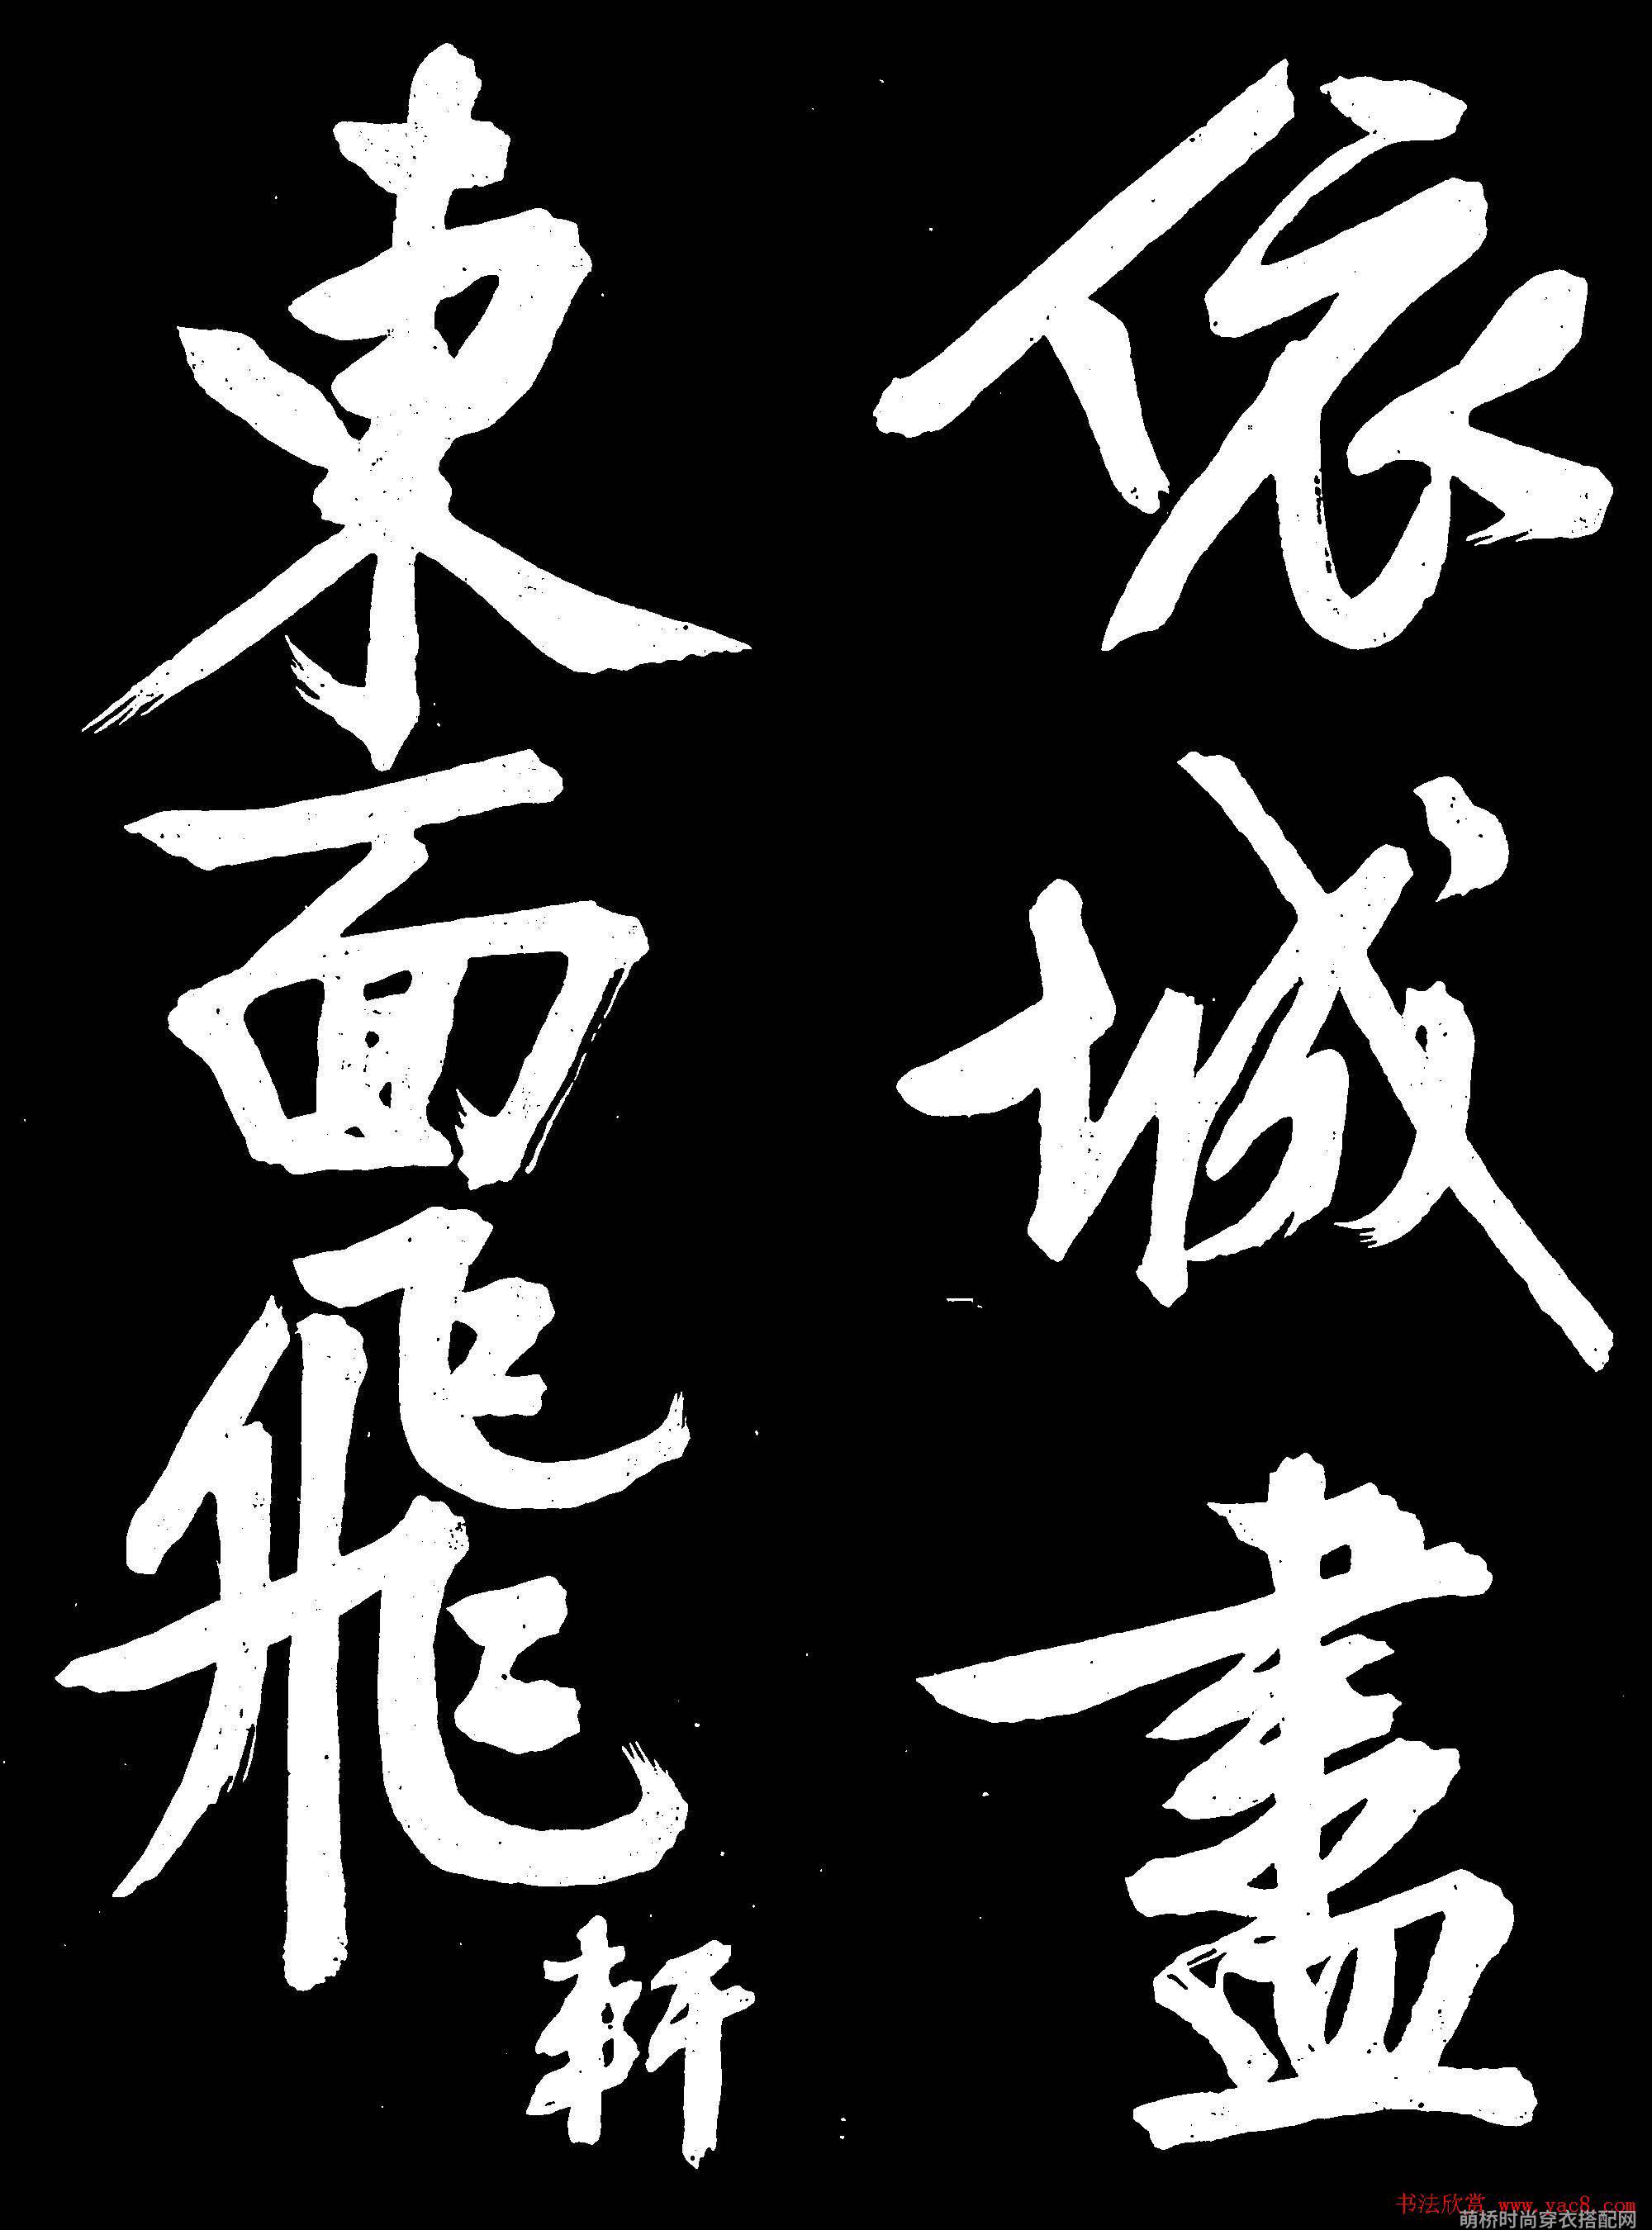 依城盡
東面飛
軒
书法欣赏 www.yac8.com
萌桥时尚穿衣搭配网